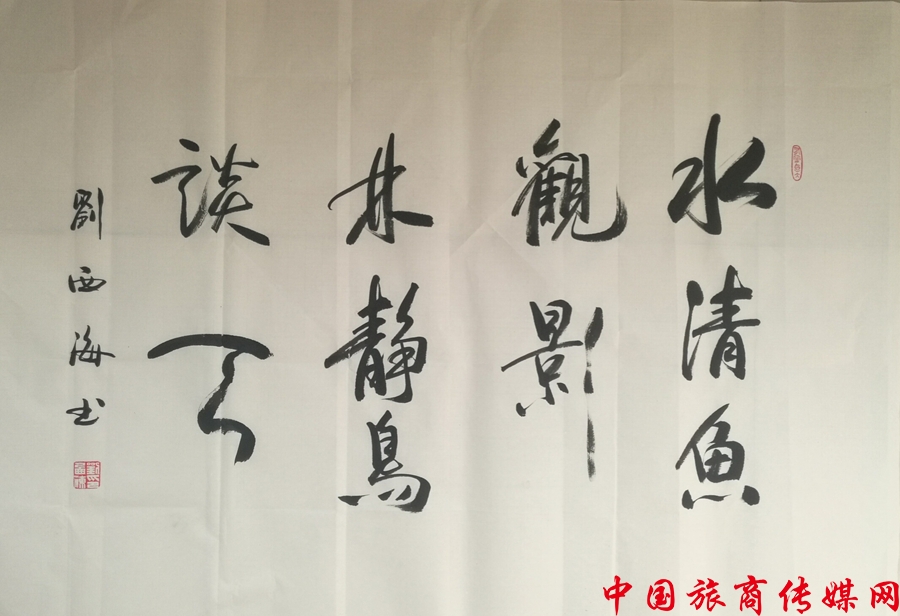 水清魚
觀影
林静鳥
談天
劉西海书
中国旅商传媒网